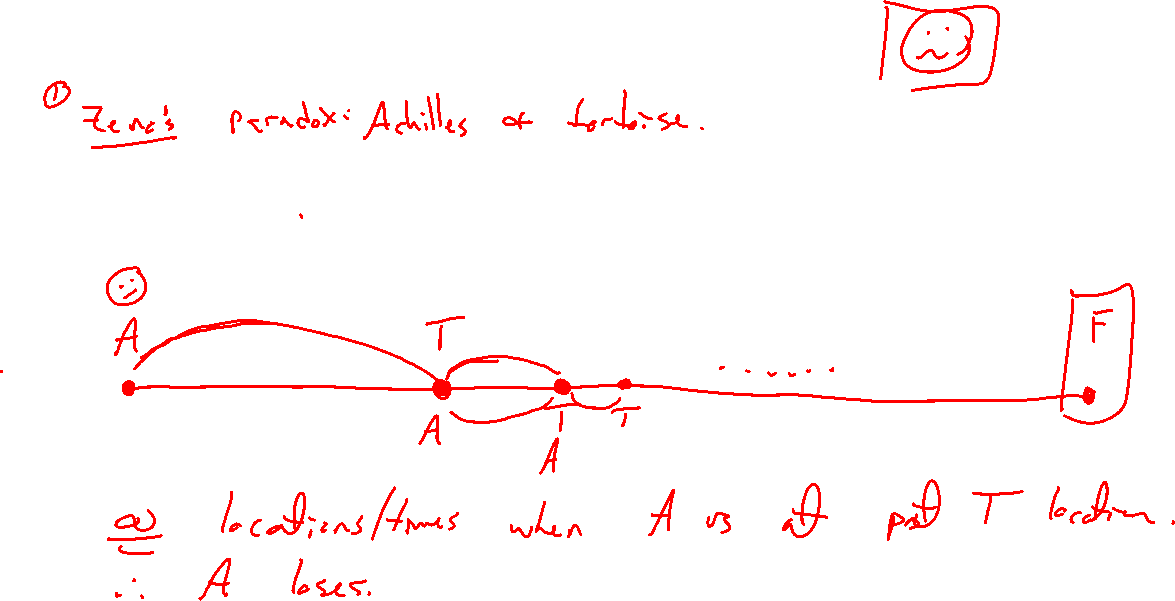 ① Zeno's paradox: Achilles & tortoise.
A T F
A T T
A
∞ locations/times when A is at past T location.
∴ A loses.